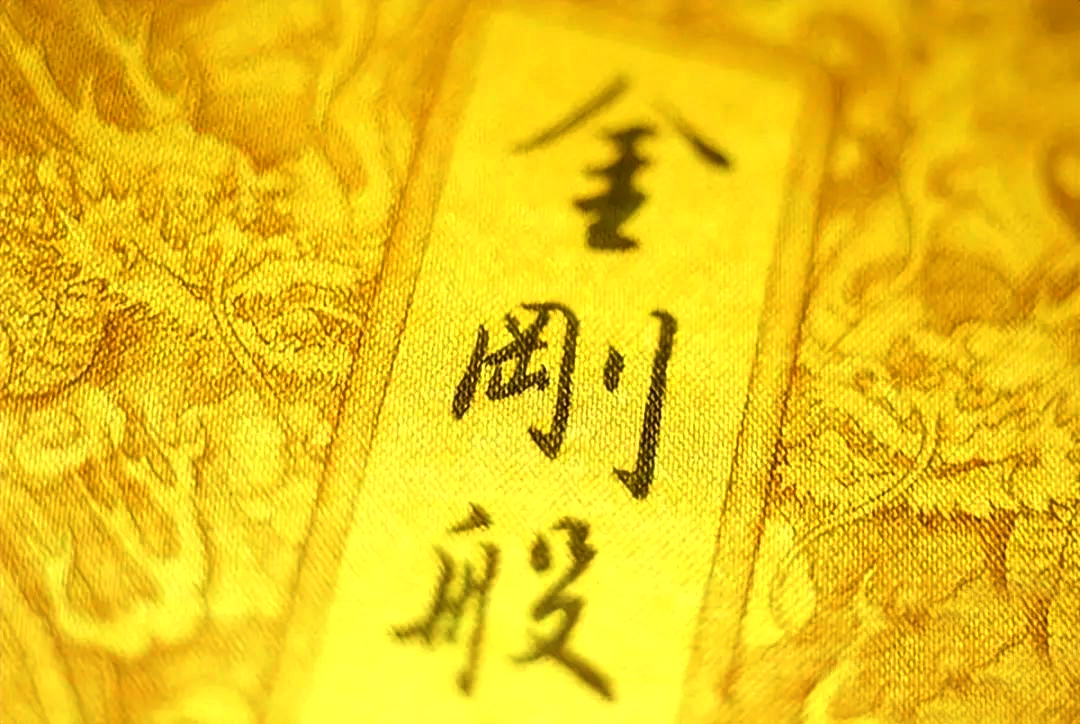 金剛般